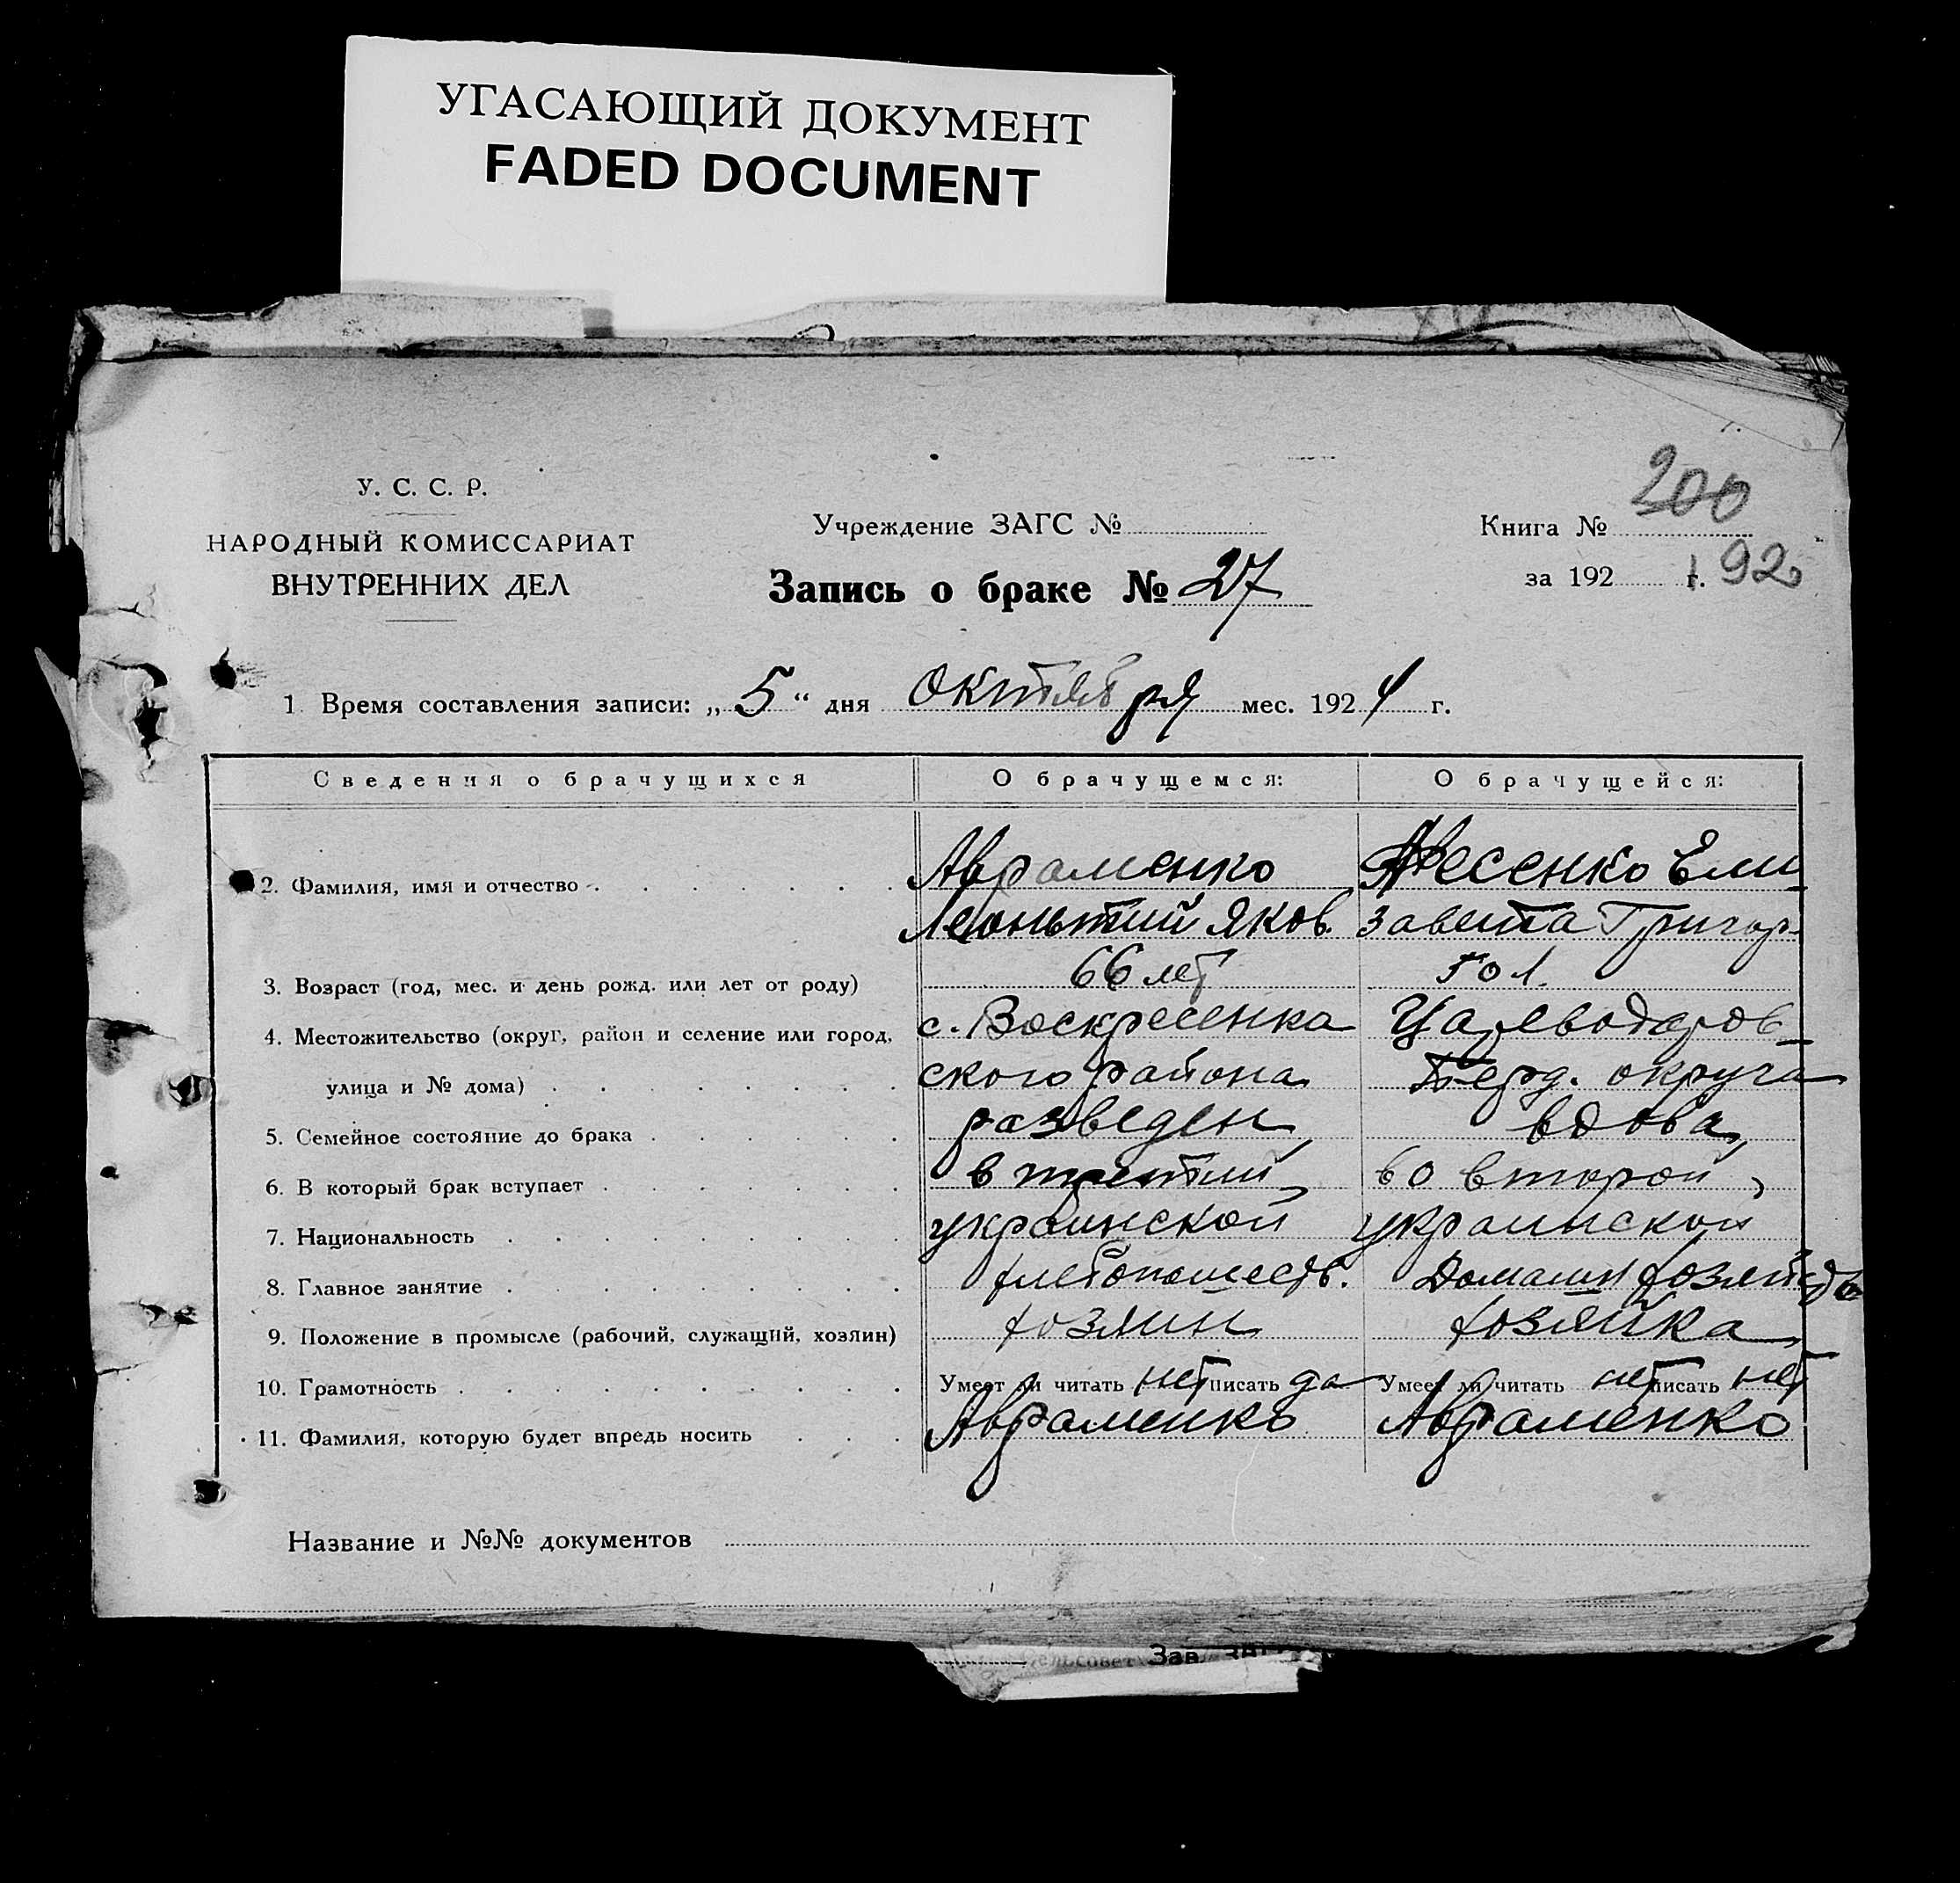 УГАСАЮЩИЙ ДОКУМЕНТ
FADED DOCUMENT
У. С. С. Р.
НАРОДНЫЙ КОМИССАРИАТ
ВНУТРЕННИХ ДЕЛ
Учреждение ЗАГС №
Запись о браке № 27
Книга № 200
за 192 г. 192
1 Время составления записи: „ 5 “ дня октября мес. 1924 г.
Сведения о брачущихся О брачущемся: О брачущейся:
2. Фамилия, имя и отчество Авраменко Ели
Леонтий Яков. завета Григор-
3. Возраст (год, мес. и день рожд. или лет от роду) 66 лет 50 л.
4. Местожительство (округ, район и селение или город, с. Воскресенка Цареводаров
улица и № дома) ского района Берд. округа
5. Семейное состояние до брака разведен, вдова,
6. В который брак вступает в третий, во второй,
7. Национальность украинской украинской
8. Главное занятие хлебопашеств. Домашн хозяйство
9. Положение в промысле (рабочий, служащий, хозяин) хозяин хозяйка,
10. Грамотность Умеет ли читать нет писать да Умеет ли читать нет писать нет
11. Фамилия, которую будет впредь носить Авраменко Авраменко
Название и №№ документов
Сельсовет Зав.